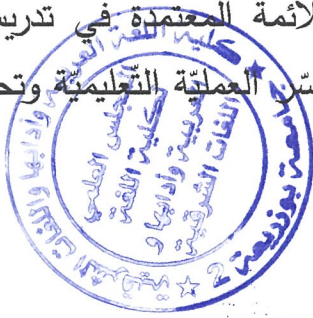 لائمة المعتمدة في تدريس
سّر العمليّة التّعليميّة وتح
كلية اللغة العربية وآدابها واللغات الشرقية
جامعة بوزريعة 2
المجلس العلمي
لكلية اللغة
العربية وآدابها و
اللغات الشرقية